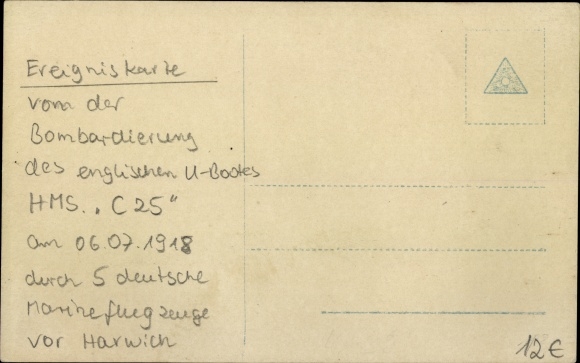 Ereigniskarte
von der
Bombardierung
des englischen U-Bootes
HMS. „C 25"
am 06.07.1918
durch 5 deutsche
Marineflugzeuge
vor Harwich
12€